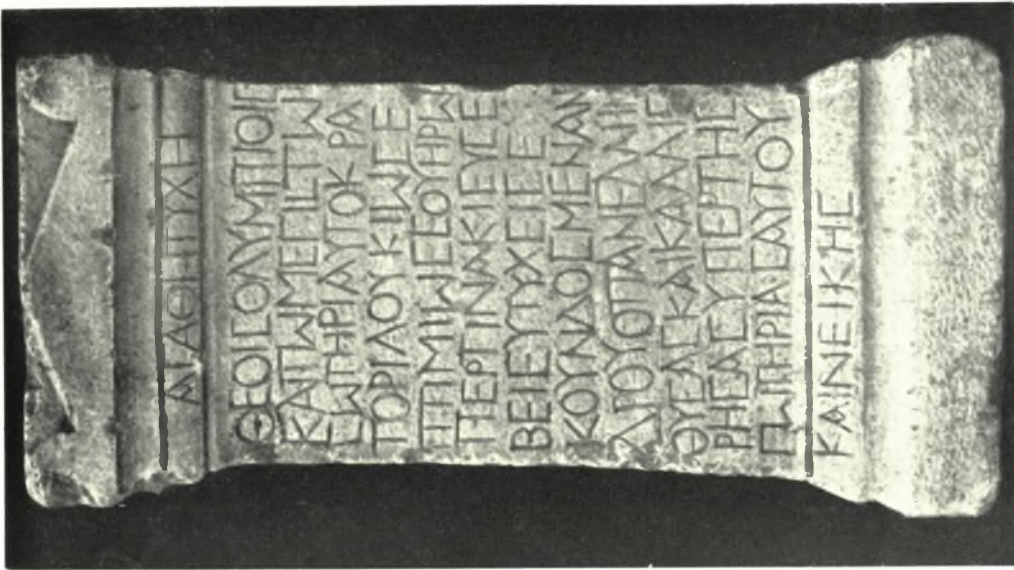 ΑΓΑΘΗΙΤΥΧΗΙ
ΘΕΟΙΣΟΛΥΜΠΙΟΙΣ
ΚΑΙΤΩΜΕΓΙΣΤΩ
ΣΩΤΗΡΙΑΥΤΟΚΡΑ
ΤΟΡΙΛΟΥΚΙΩΣΕ
ΠΤΙΜΙΩΣΕΟΥΗΡΩ
ΠΕΡΤΙΝΑΚΙΕΥΣΕ
ΒΕΙΕΥΤΥΧΕΙΣΕ
ΚΟΥΝΔΟΣΜΕΝΑΝ
ΔΡΟΥΟΠΑΝΕΛΛΗΝ
ΘΥΣΑΣΚΑΙΚΑΛΛΙΕ
ΡΗΣΑΣΥΠΕΡΤΗΣ
ΣΩΤΗΡΙΑΣΕΑΥΤΟΥ
ΚΑΙΝΕΙΚΗΣ